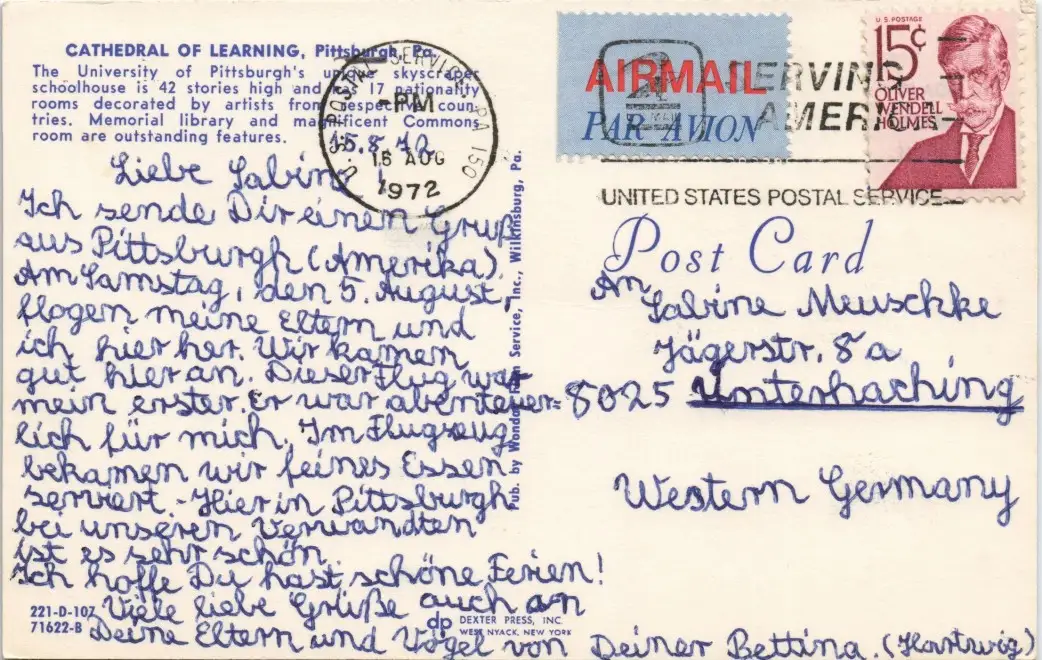 CATHEDRAL OF LEARNING, Pittsburgh, Pa.
The University of Pittsburgh's unique skyscraper
schoolhouse is 42 stories high and has 17 nationality
rooms decorated by artists from respective coun-
tries. Memorial library and magnificent Commons
room are outstanding features.
15.8.72
Liebe Sabine!
Ich sende Dir einen Gruß
aus Pittsburgh (Amerika).
Am Samstag, den 5. August,
flogen meine Eltern und
ich hier her. Wir kamen
gut hier an. Dieser Flug war
mein erster. Er war abenteuer=
lich für mich. Im Flugzeug
bekamen wir feines Essen
serviert. - Hier in Pittsburgh
bei unseren Verwandten
ist es sehr schön.
Ich hoffe Du hast schöne Ferien!
Viele liebe Grüße auch an
Deine Eltern und Vögel von Deiner Bettina. (Hartwig)
221-D-107
71622-B
dp DEXTER PRESS, INC.
WEST NYACK, NEW YORK
Pub. by Wonday Service, Inc., Wilkinsburg, Pa.
U.S. POSTAL SERVICE PA 150
PM
16 AUG
1972
AIRMAIL
PAR AVION
U.S. MAIL
SERVING
AMERICA
UNITED STATES POSTAL SERVICE
U.S. POSTAGE
15¢
OLIVER
WENDELL
HOLMES
Post Card
An
Sabine Meuschke
Jägerstr. 8a
8025 Unterhaching
Western Germany